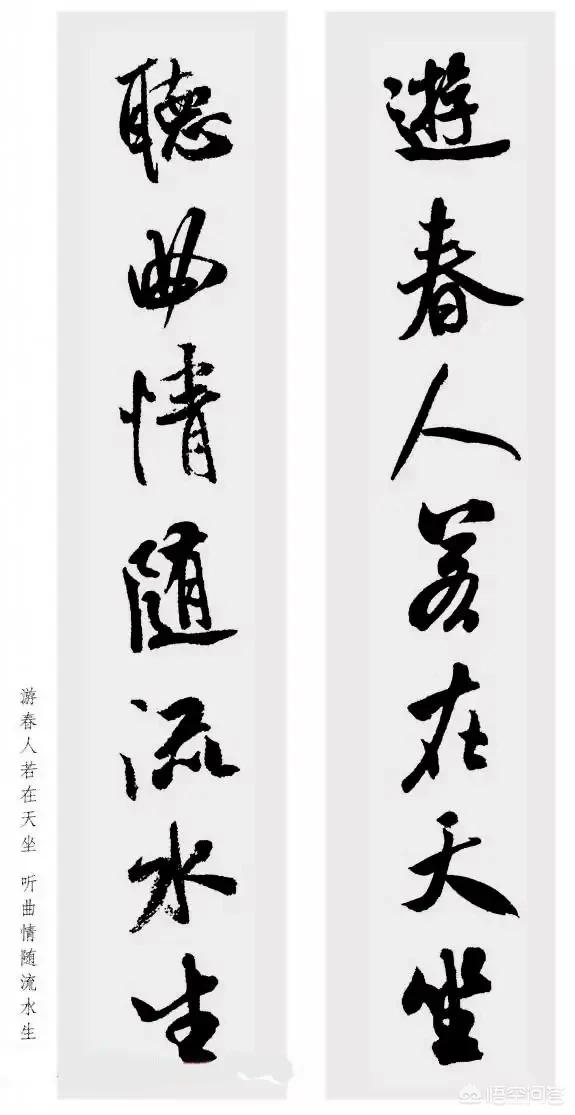 遊春人若在天坐
聽曲情随流水生
游春人若在天坐 听曲情随流水生
悟空问答